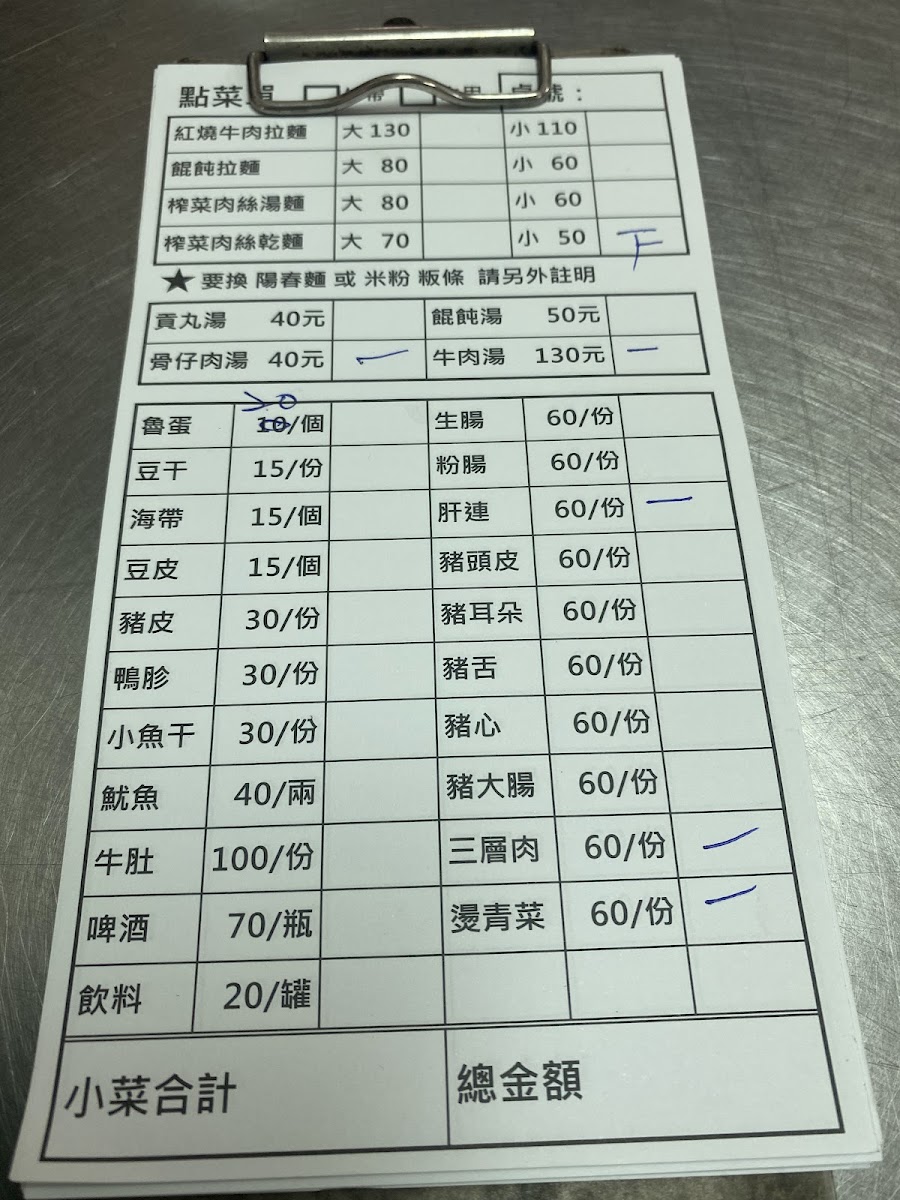 點菜單 □ □ 桌號：
紅燒牛肉拉麵 大 130 小 110
餛飩拉麵 大 80 小 60
榨菜肉絲湯麵 大 80 小 60
榨菜肉絲乾麵 大 70 小 50 下
★要換 陽春麵 或 米粉 粄條 請另外註明
貢丸湯 40元 餛飩湯 50元
骨仔肉湯 40元 一 牛肉湯 130元 一
20
魯蛋 10/個 生腸 60/份
豆干 15/份 粉腸 60/份
海帶 15/個 肝連 60/份 一
豆皮 15/個 豬頭皮 60/份
豬皮 30/份 豬耳朵 60/份
鴨胗 30/份 豬舌 60/份
小魚干 30/份 豬心 60/份
魷魚 40/兩 豬大腸 60/份
牛肚 100/份 三層肉 60/份 一
啤酒 70/瓶 燙青菜 60/份 一
飲料 20/罐
小菜合計 總金額